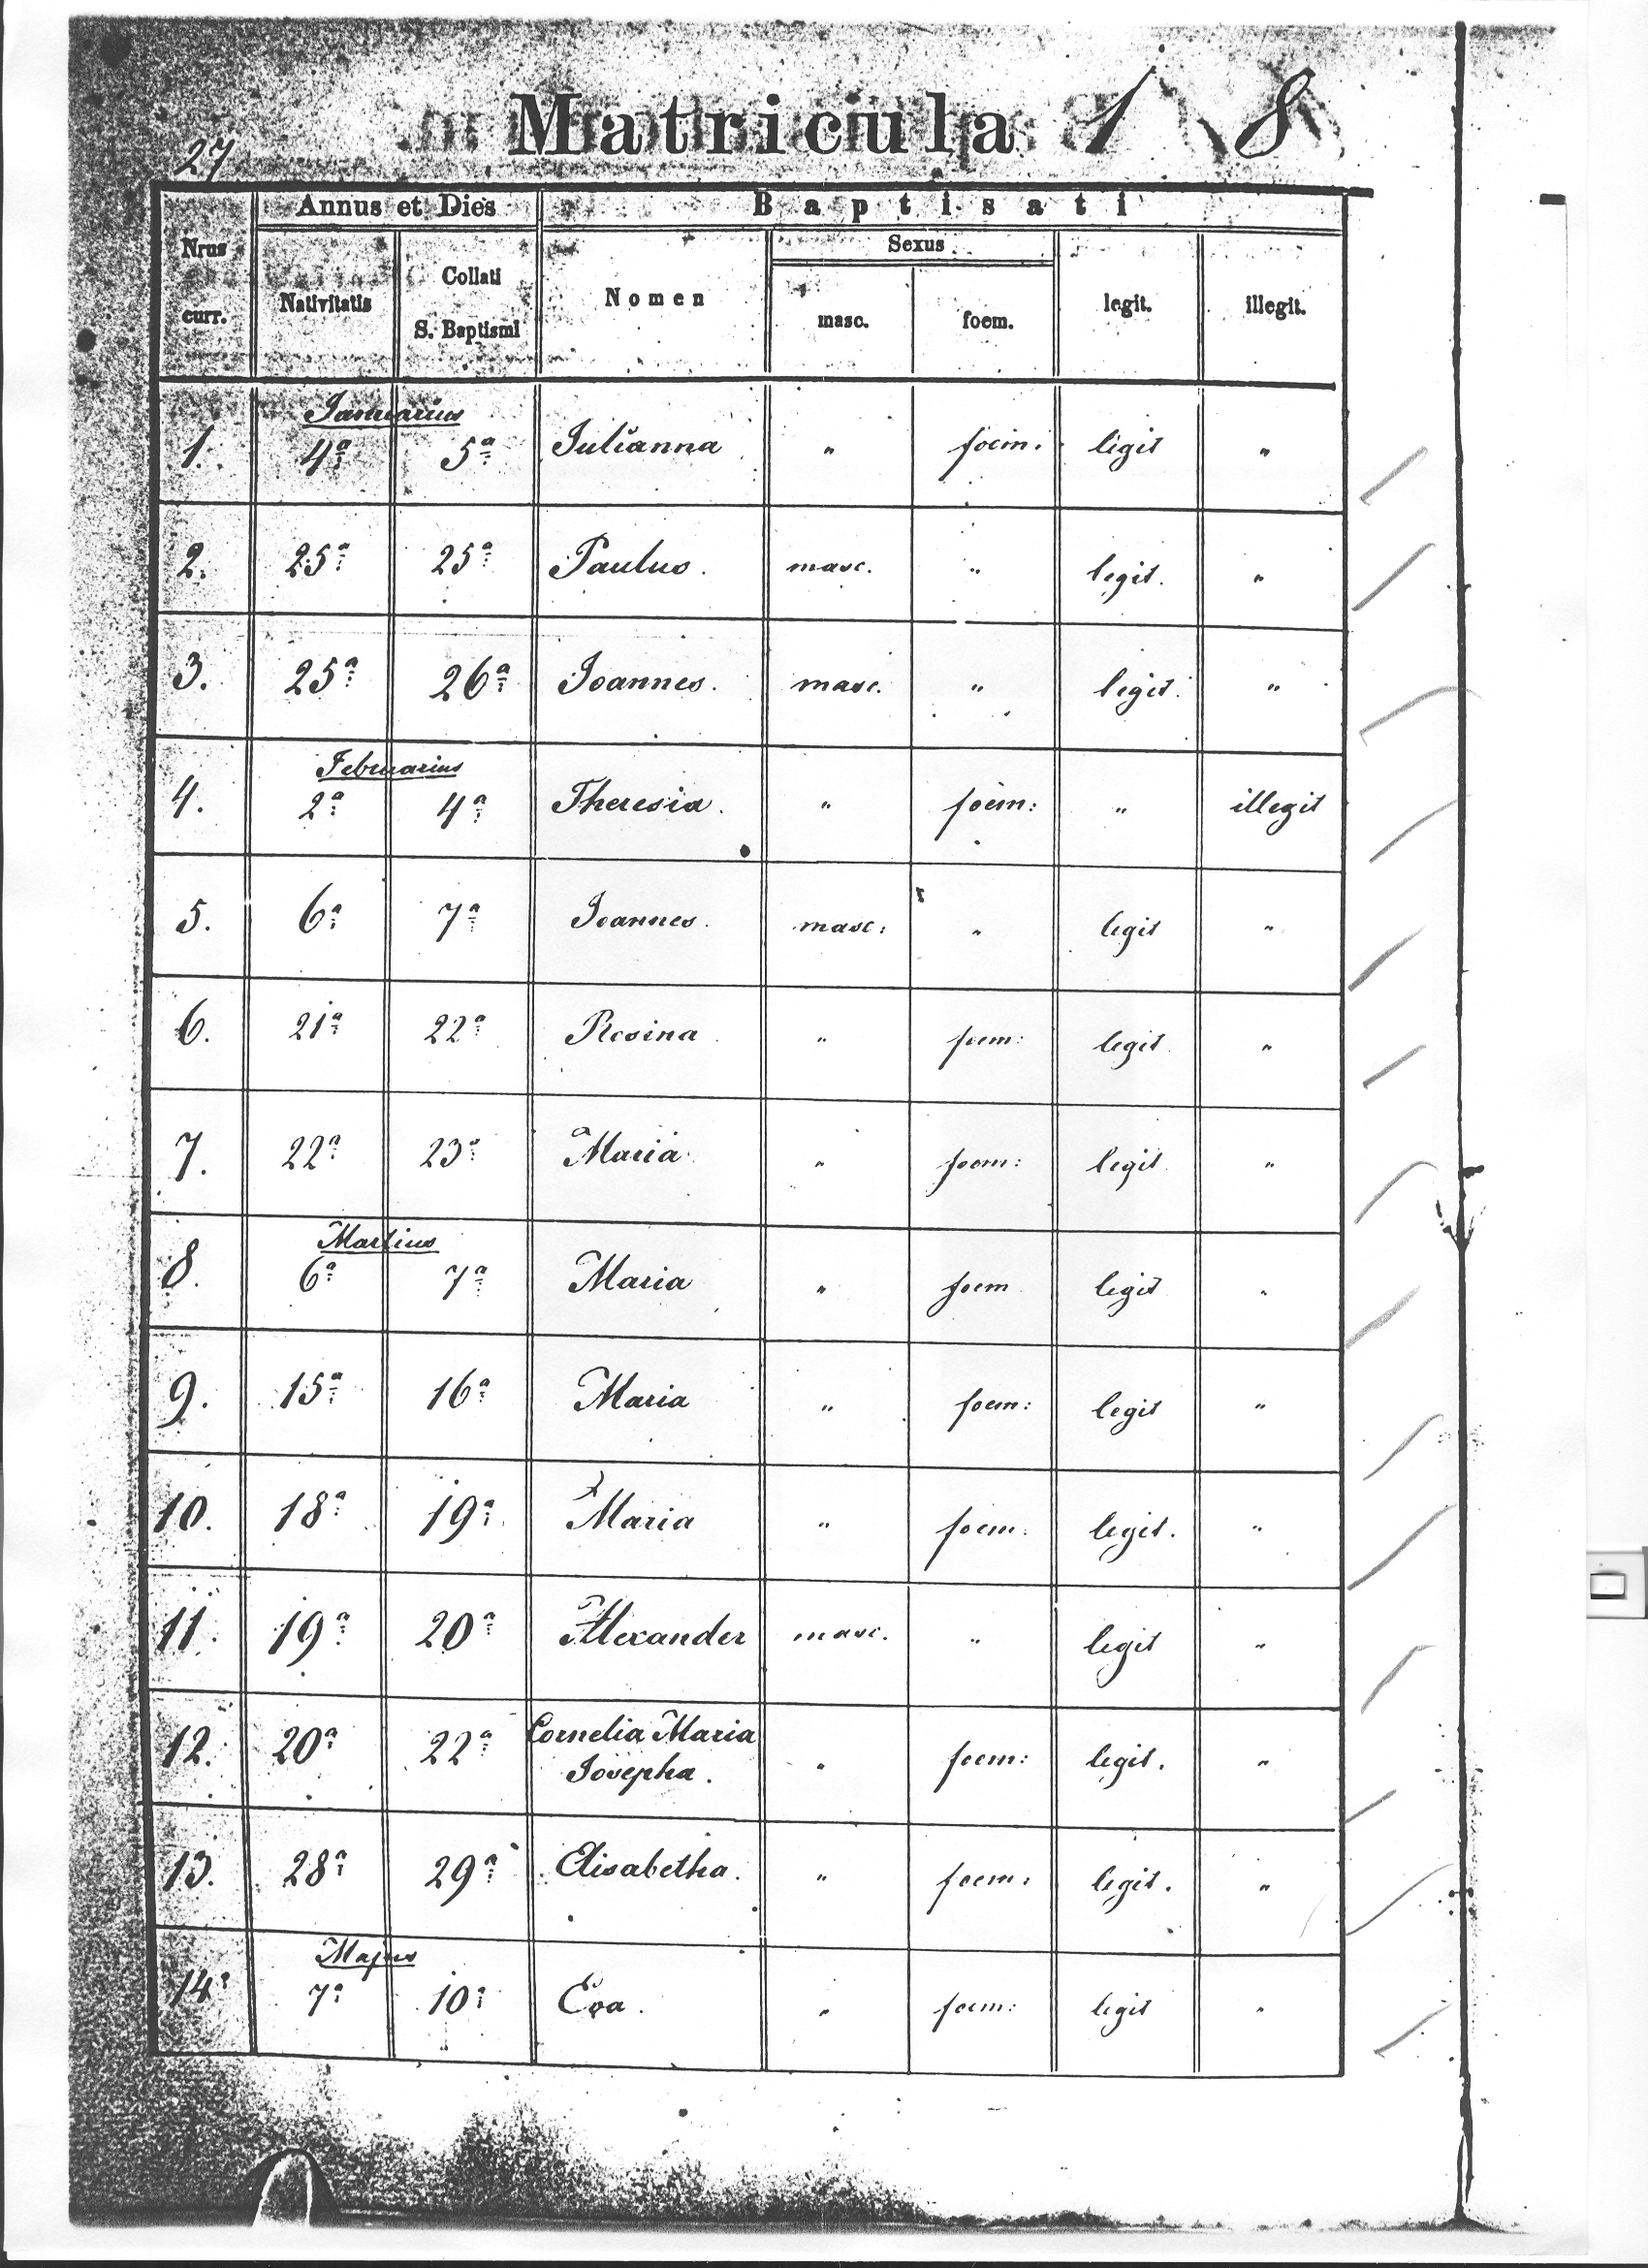 27
Matricula 1 8
Annus et Dies
Baptisati
Nrus
curr.
Nativitatis
Collati
S. Baptismi
Nomen
Sexus
masc.
foem.
legit.
illegit.
Januarius
1. 4a 5a Julianna " foem. legit "
2. 25a 25a Paulus. masc. " legit. "
3. 25a 26a Joannes. masc. " legit. "
Februarius
4. 2a 4a Theresia. " foem: " illegit
5. 6a 7a Joannes. masc: " legit "
6. 21a 22a Rosina " foem: legit. "
7. 22a 23a Maria " foem: legit "
Martius
8. 6a 7a Maria " foem legit "
9. 15a 16a Maria " foem: legit "
10. 18a 19a Maria " foem: legit. "
11. 19a 20a Alexander masc. " legit "
12. 20a 22a Cornelia Maria
Josepha. " foem: legit. "
13. 28a 29a Elisabetha. " foem: legit. "
Majus
14 7a 10a Eva. " foem: legit "